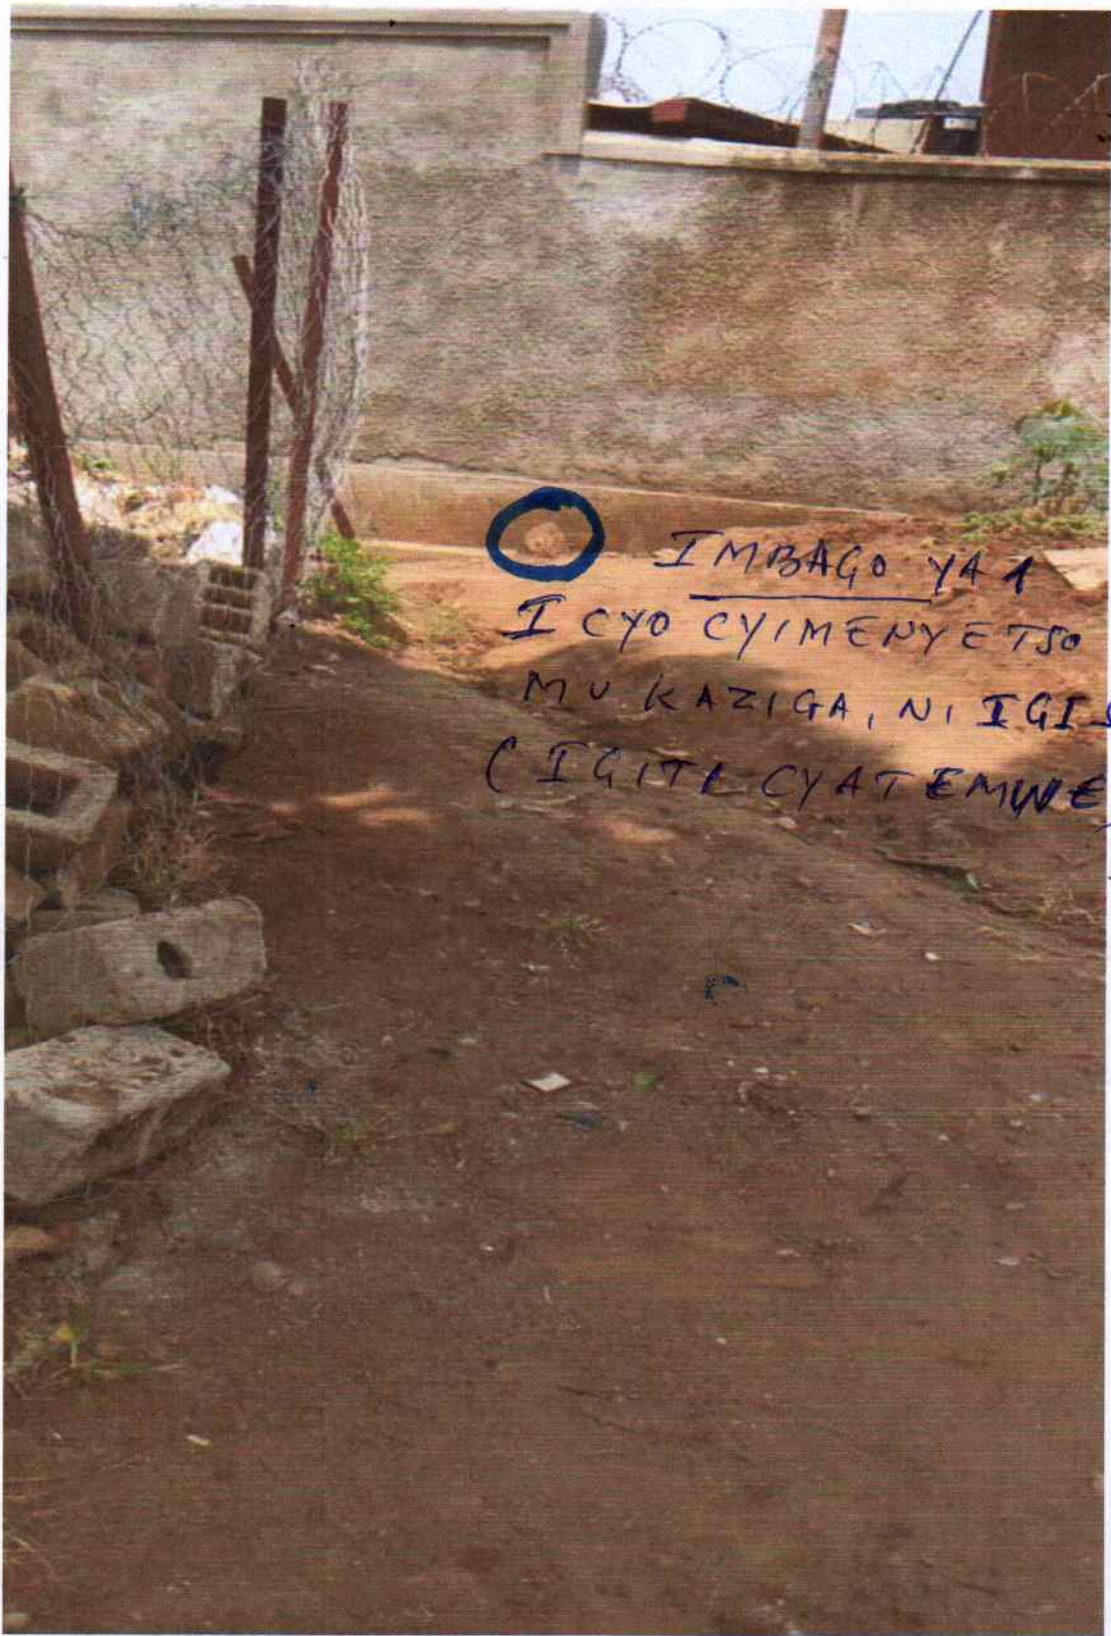 IMBAGO YA 1
ICYO CYIMENYETSO
MU KAZIGA, NI
(IGITI CYATEMWE)